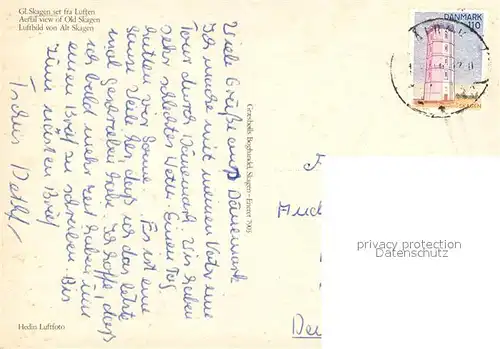 Gl. Skagen set fra Luften
Aerial view of Old Skagen
Luftbild von Alt Skagen
Viele Grüße aus Dänemark
Ich mache mit meinem Vater eine
Tour durch Dänemark. Wir haben
sehr schlechtes Wetter. Einen Tag
hatten wir Sonne. Es ist eine
ganze Weile her, daß ich das letzte
mal geschrieben habe. Ich hoffe, daß
ich bald mehr Zeit habe, um
einen Brief zu schreiben. Bis
zum nächsten Brief
Tschüs Detlef
Hedin Luftfoto
Grønbolls Boghandel, Skagen - Eneret 7905
DANMARK
110
SKAGEN
privacy protection
DatenSchutz